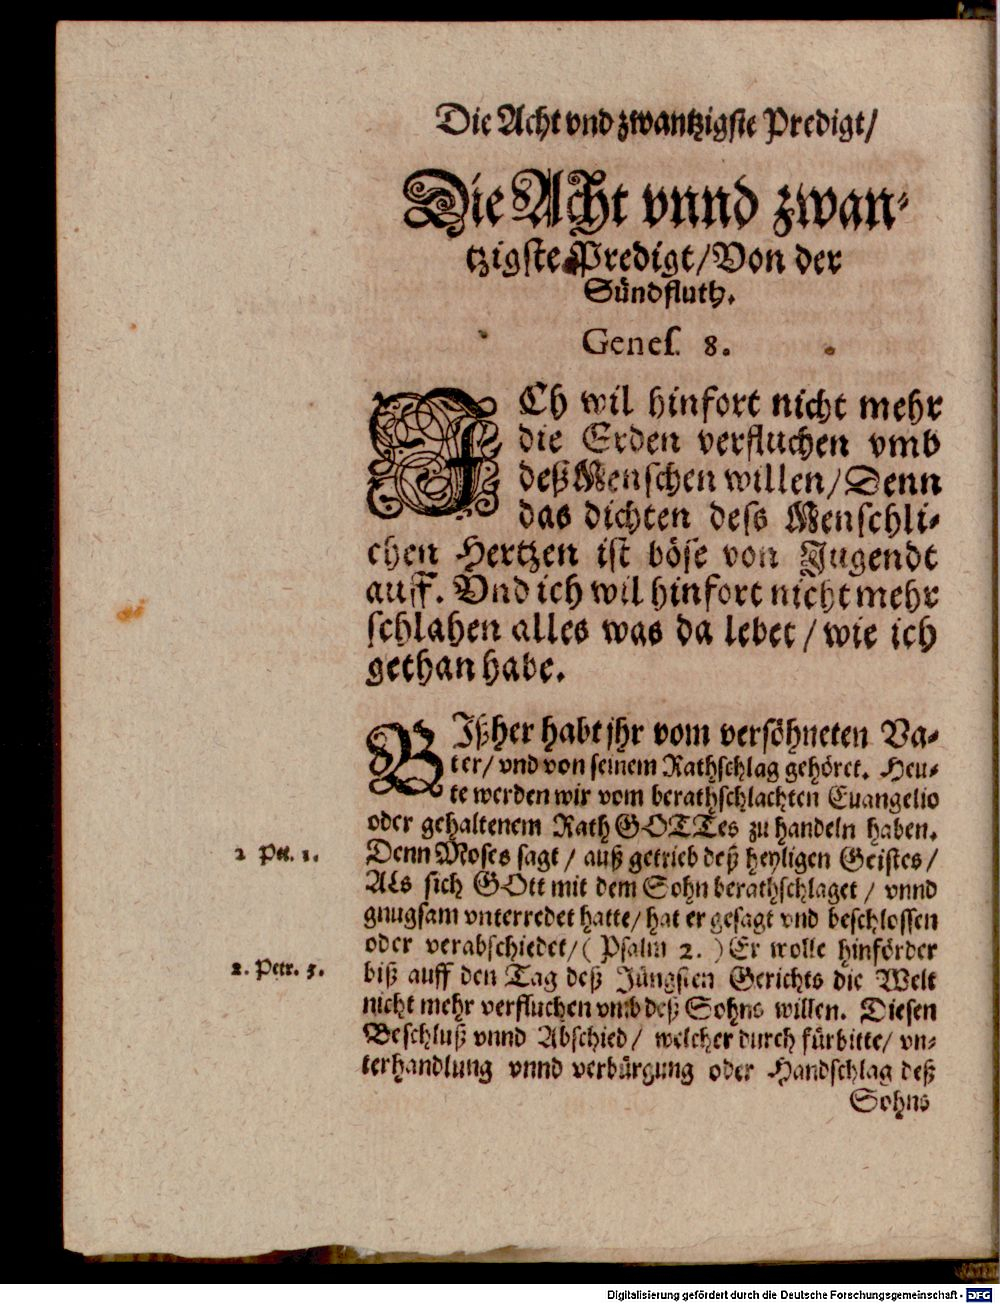 Die Acht vnd zwantzigste Predigt/
Die Acht vnnd zwan-
tzigste Predigt/Von der
Sündfluth.
Genes. 8.
ICh wil hinfort nicht mehr
die Erden verfluchen vmb
deß Menschen willen/Denn
das dichten dess Menschli-
chen Hertzen ist böse von Jugendt
auff. Vnd ich wil hinfort nicht mehr
schlahen alles was da lebet/wie ich
gethan habe.
BIßher habt jhr vom versöhneten Va-
ter/ vnd von seinem Rathschlag gehöret. Heu-
te werden wir vom berathschlachten Euangelio
oder gehaltenem Rath GOTTes zu handeln haben.
2 Pet. 1.
Denn Moses sagt/ auß getrieb deß heyligen Geistes/
Als sich GOtt mit dem Sohn berathschlaget/ vnnd
gnugsam vnterredet hatte/ hat er gesagt vnd beschlossen
oder verabschiedet/( Psalm 2. ) Er wolle hinförder
2. Petr. 3.
biß auff den Tag deß Jüngsten Gerichts die Welt
nicht mehr verfluchen vmb deß Sohns willen. Diesen
Beschluß vnnd Abschied/ welcher durch fürbitte/ vn-
terhandlung vnnd verbürgung oder Handschlag deß
Sohns
Digitalisierung gefördert durch die Deutsche Forschungsgemeinschaft - DFG